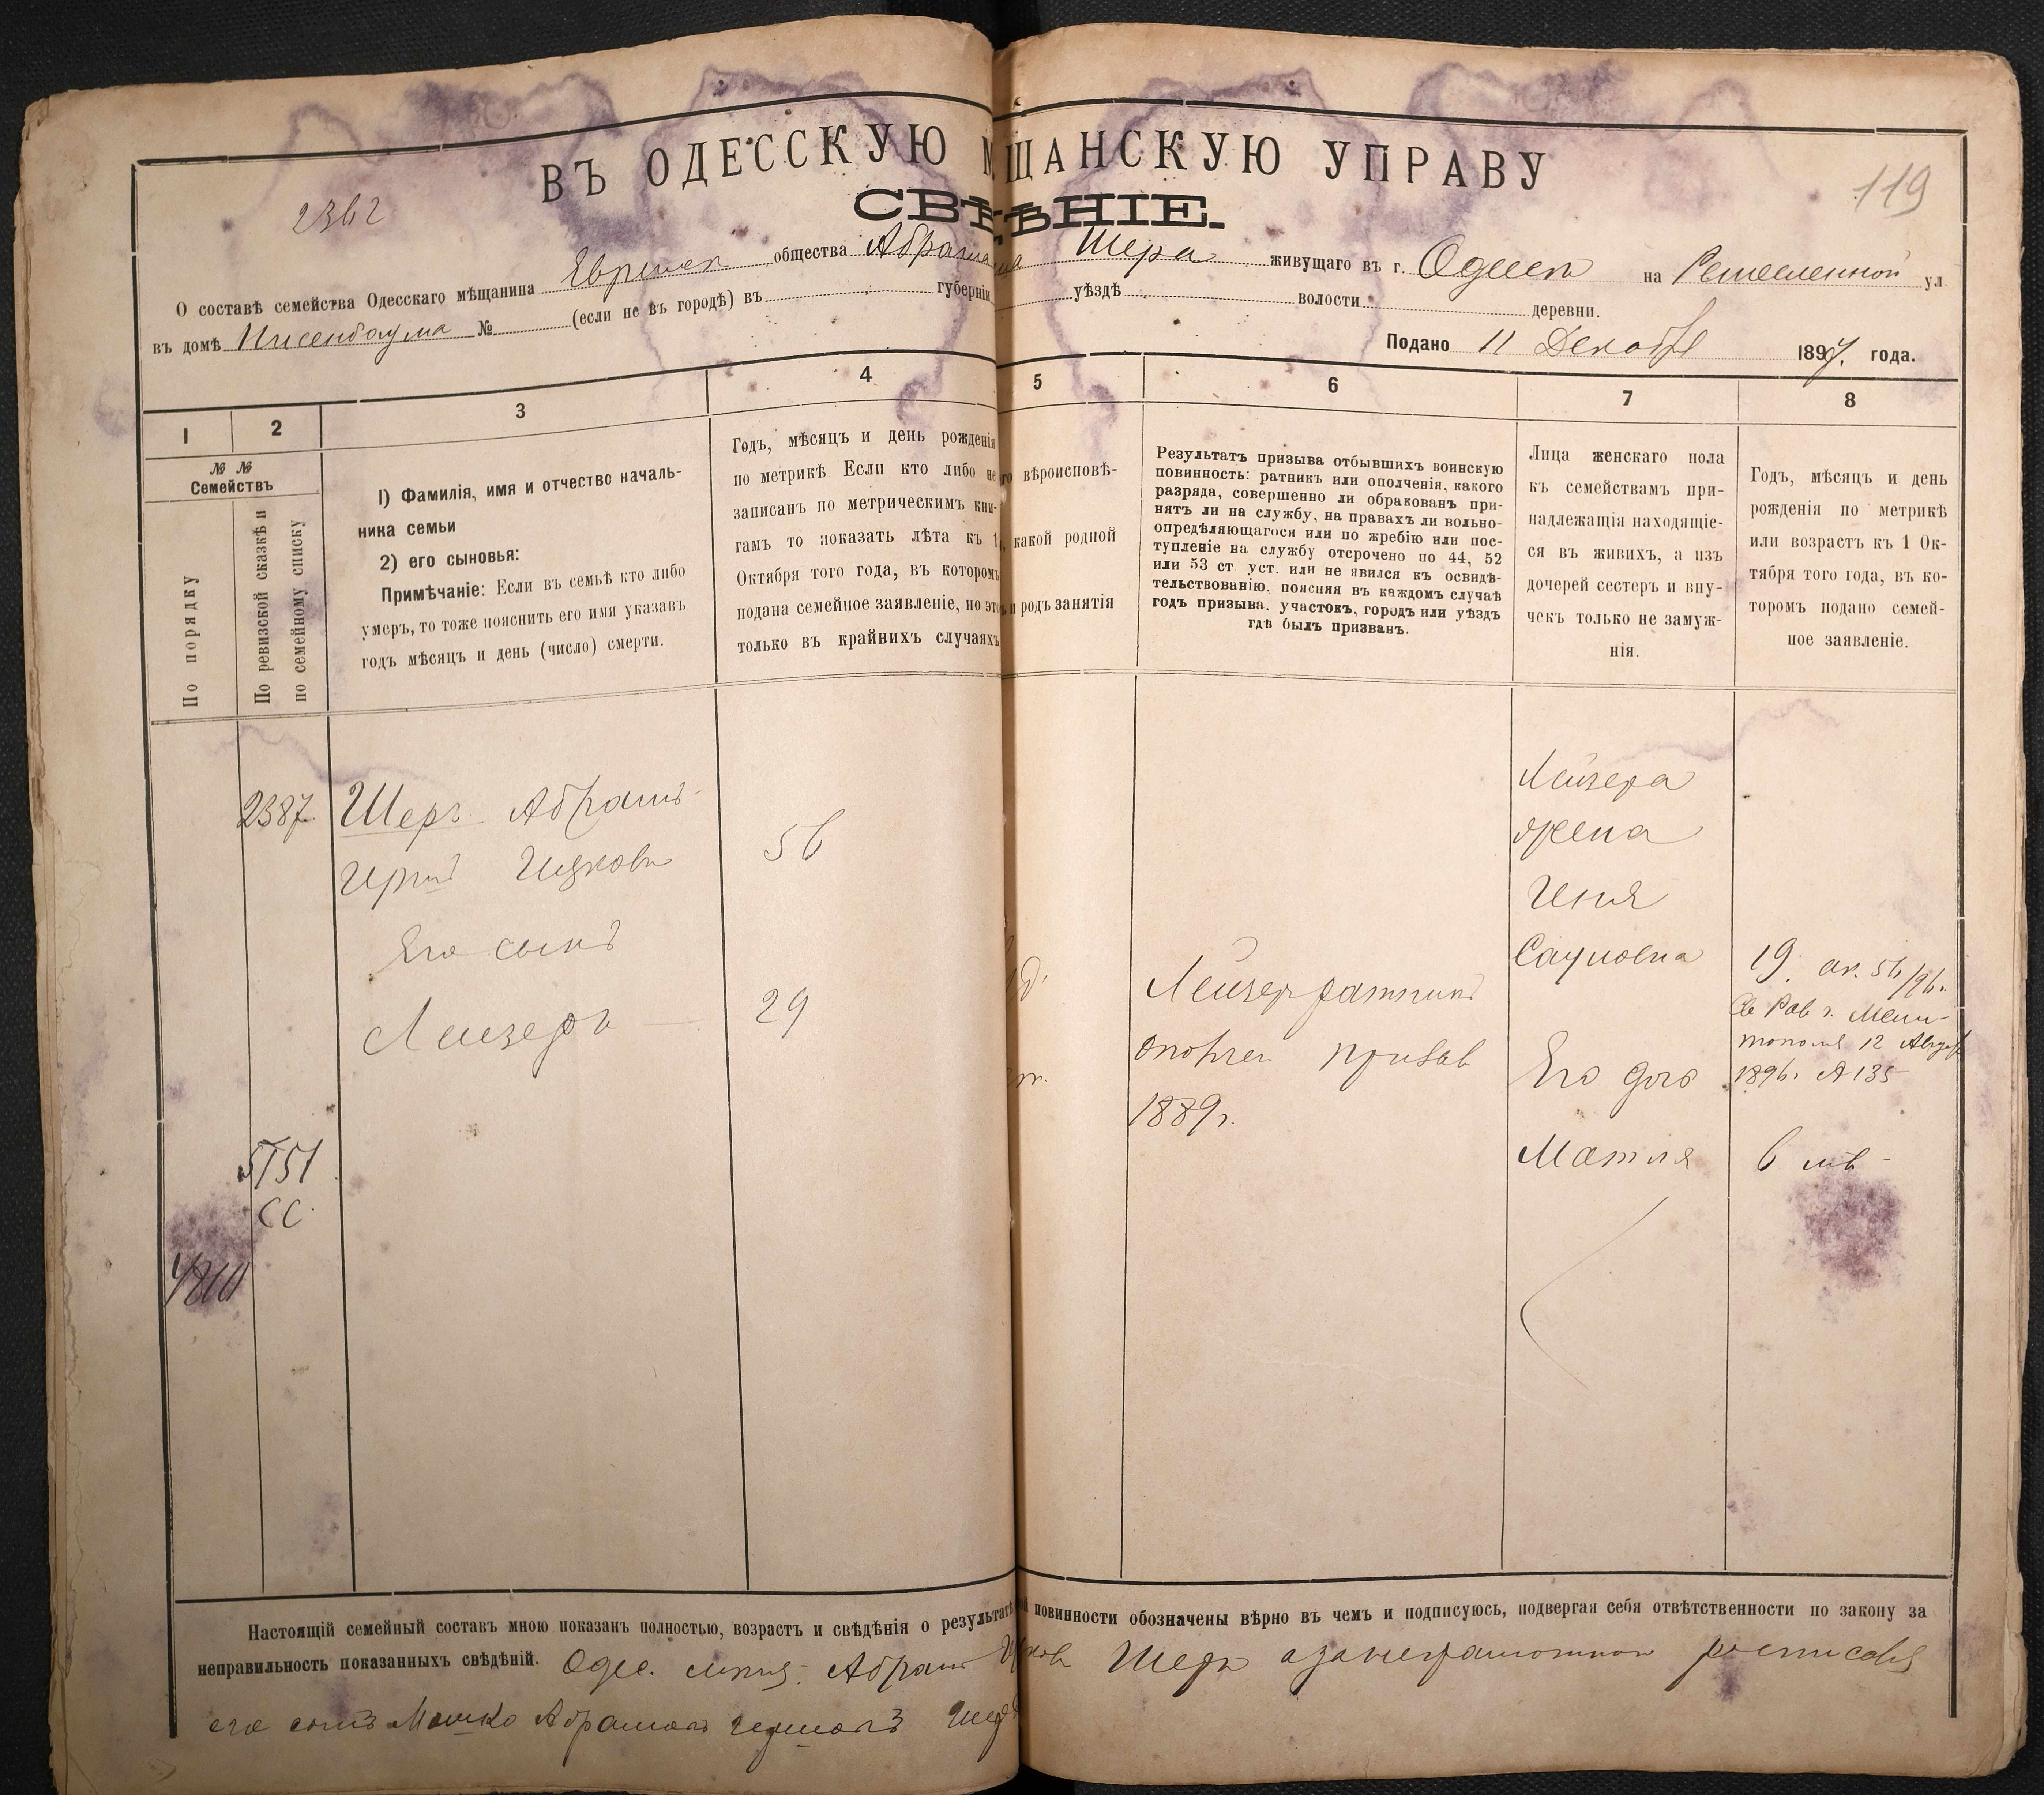 ВЪ ОДЕССКУЮ М ЩАНСКУЮ УПРАВУ
СВѢ НІЕ.
119
О составѣ семейства Одесскаго мѣщанина общества Абрама Шера живущаго въ г. на Ремесленной ул.
въ домѣ № (если не въ городѣ) въ губерніи уѣздѣ волости деревни.
Подано 11 Декабря 1897. года.
1 2 3 4 5 6 7 8
№ №
Семействъ
По порядку
По ревизской сказкѣ и
по семейному списку
1) Фамилія, имя и отчество началь-
ника семьи
2) его сыновья:
Примѣчаніе: Если въ семьѣ кто либо
умеръ, то тоже пояснить его имя указавъ
годъ мѣсяцъ и день (число) смерти.
Годъ, мѣсяцъ и день рожденія
по метрикѣ Если кто либо не
записанъ по метрическимъ кни-
гамъ то показать лѣта къ 1
Октября того года, въ которомъ
подана семейное заявленіе, но это
только въ крайнихъ случаяхъ
го вѣроисповѣ-
какой родной
и родъ занятія
Результатъ призыва отбывшихъ воинскую
повинность: ратникъ или ополченія, какого
разряда, совершенно ли обракованъ при-
нятъ ли на службу, на правахъ ли вольно-
опредѣляющагося или по жребію или пос-
тупленіе на службу отсрочено по 44, 52
или 53 ст уст. или не явился къ освидѣ-
тельствованію, поясняя въ каждомъ случаѣ
годъ призыва, участокъ, городъ или уѣздъ
гдѣ былъ призванъ.
Лица женскаго пола
къ семействамъ при-
надлежащія находящіе-
ся въ живихъ, а изъ
дочерей сестеръ и вну-
чекъ только не замуж-
нія.
Годъ, мѣсяцъ и день
рожденія по метрикѣ
или возрастъ къ 1 Ок-
тября того года, въ ко-
торомъ подано семей-
ное заявленіе.
2387
Шеръ Абрамъ
56
Его сынъ
Лейзеръ
29
Лейзеръ ратникъ
1889г.
Лейзера
жена
Геня
Сауловна
19
12 Августа
1896. № 135
Его дочь
Матля
6
5151
СС.
Настоящій семейный составъ мною показанъ полностью, возрастъ и свѣдѣнія о результатѣ повинности обозначены вѣрно въ чемъ и подписуюсь, подвергая себя отвѣтственности по закону за
неправильность показанныхъ свѣдѣній. Одес. Абрамъ Шеръ
его сынъ Мошко Абрамовъ Шеръ